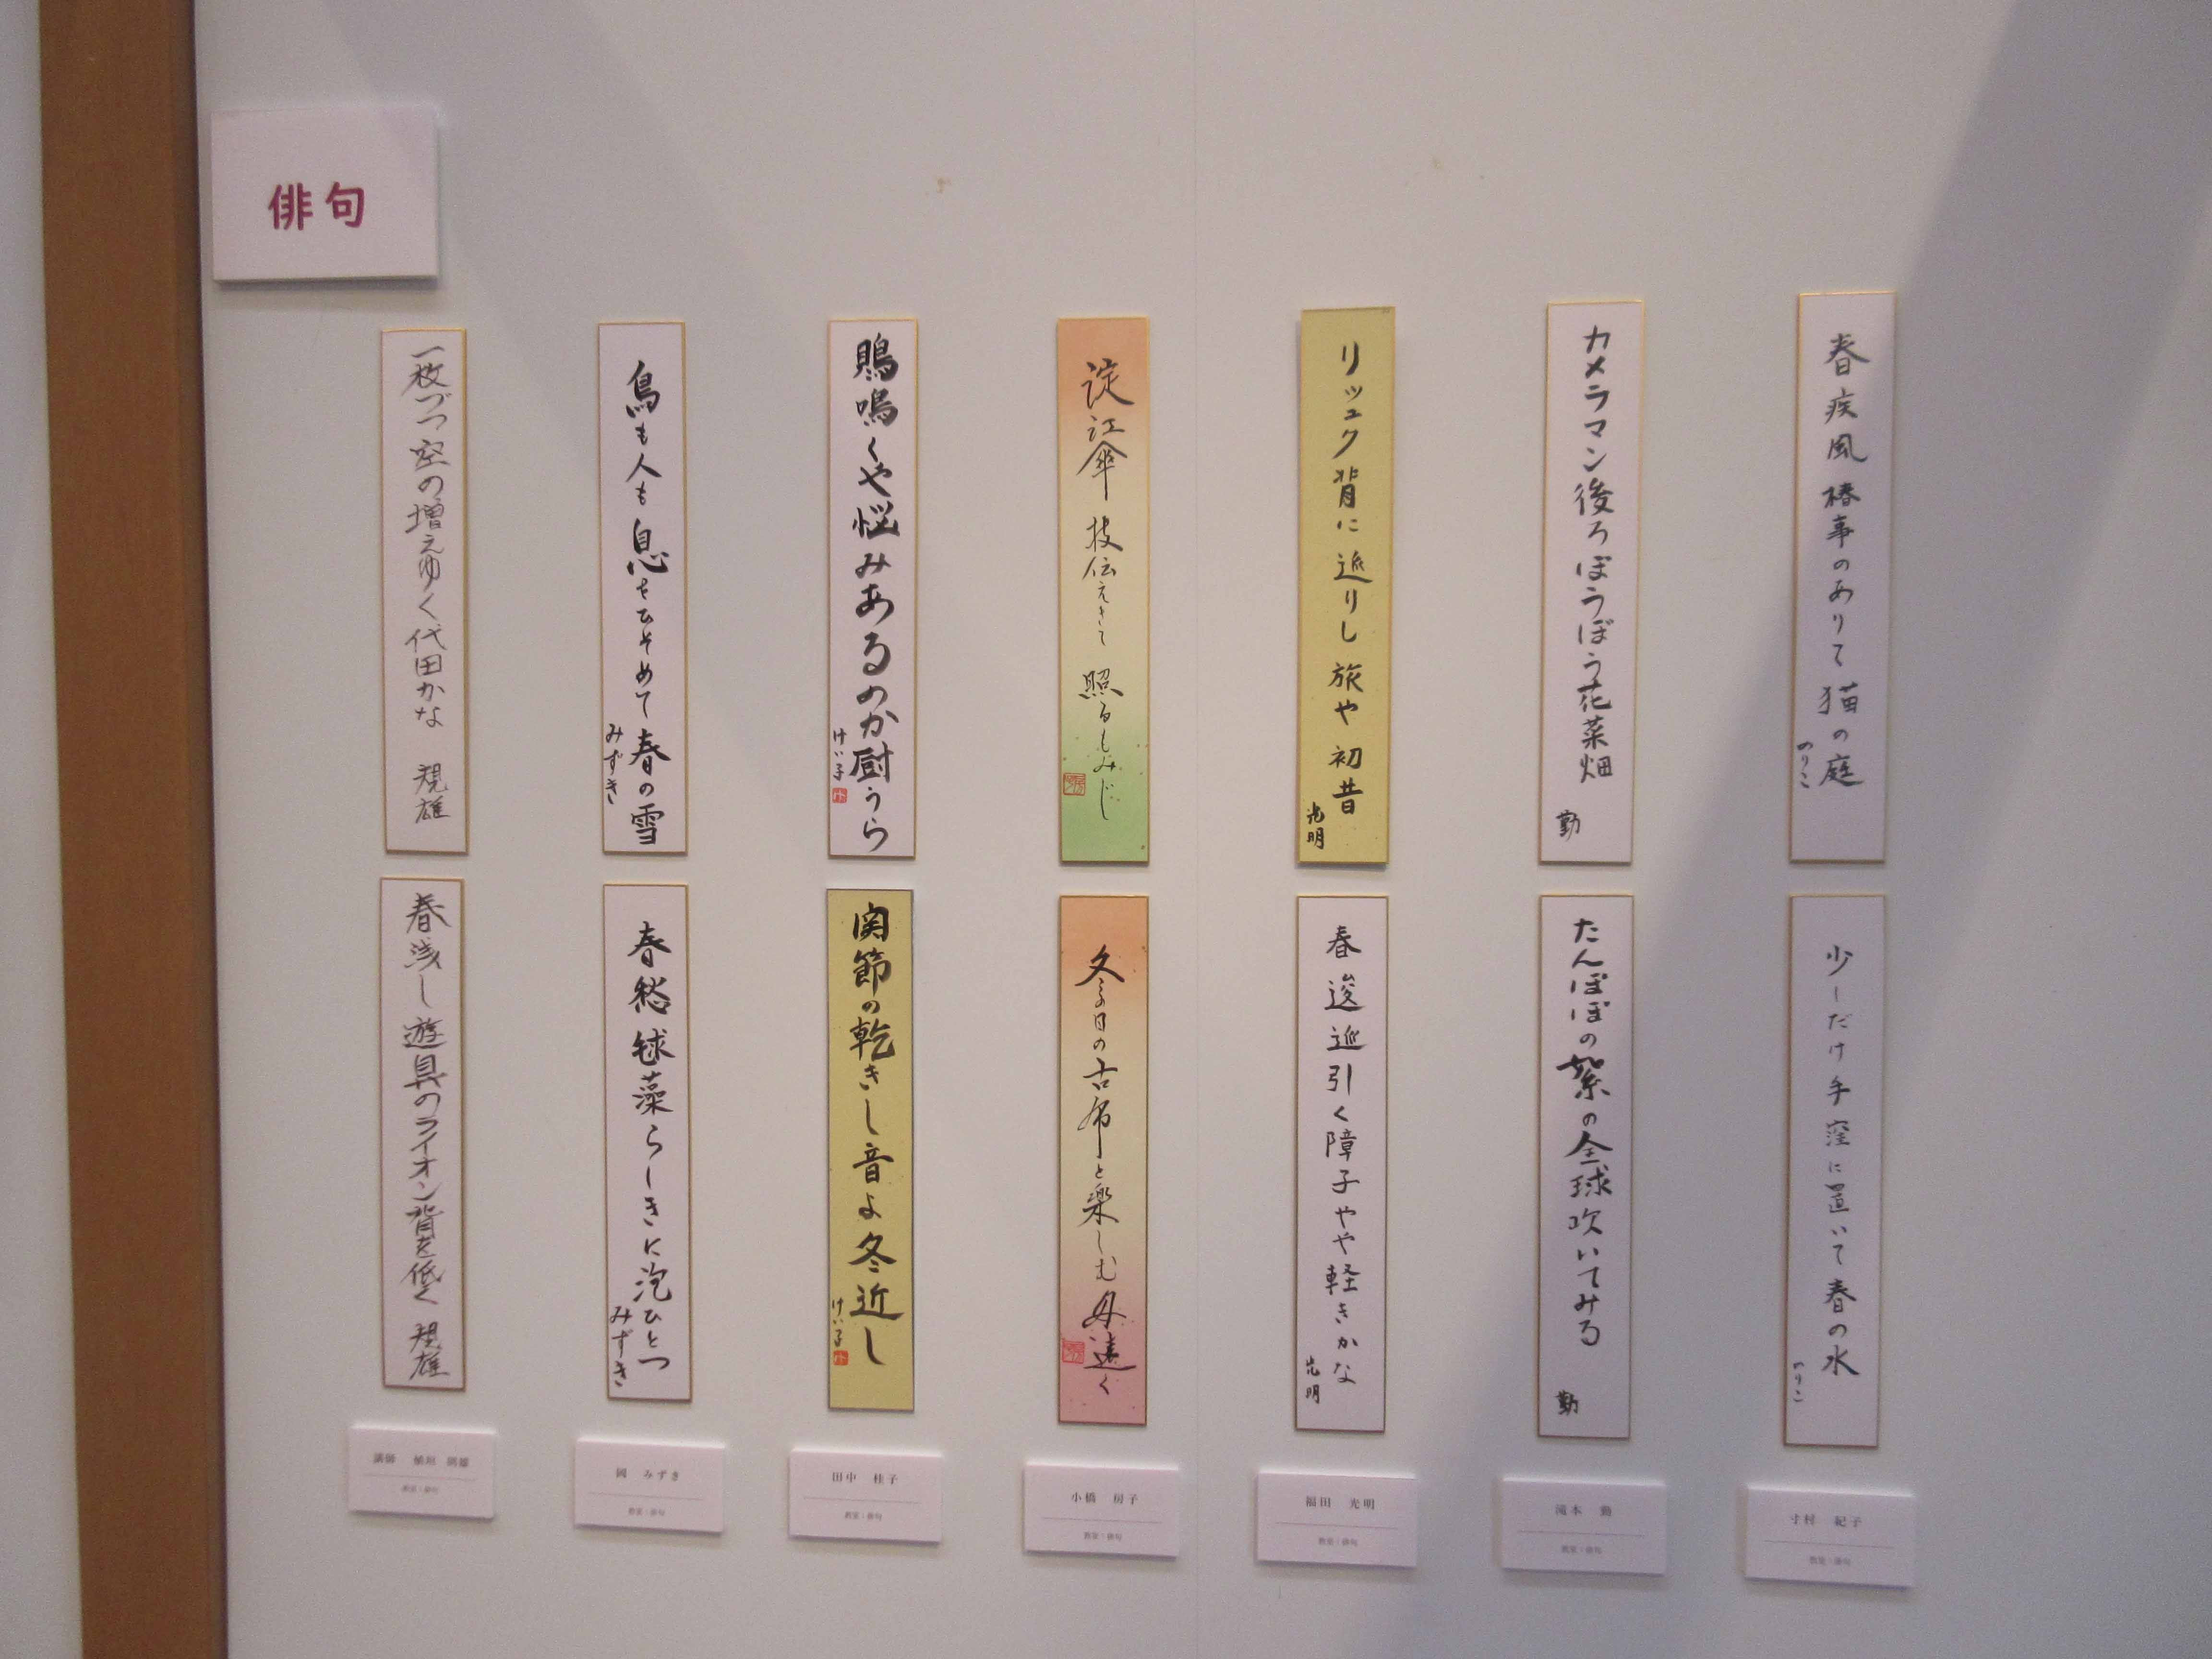 俳句
一枚づつ空の増えゆく代田かな 規雄
鳥も人も息をひそめて春の雪
みずき
鵙鳴くや悩みあるのか厨うら
けい子
淀江傘 技伝えきて 照るもみじ
リッュク背に巡りし旅や初昔
光明
カメラマン後ろぼうぼう花菜畑
勤
春疾風椿事のありて猫の庭
のりこ
春浅し遊具のライオン背を低く 規雄
春愁毬藻らしきに泡ひとつ
みずき
関節の乾きし音よ冬近し
けい子
冬の日の古布と楽しむ母遠く
春逡巡引く障子やや軽きかな
光明
たんぽぽの絮の全球吹いてみる
勤
少しだけ手窪に置いて春の水
のりこ
講師 植垣 規雄
教室:俳句
みずき
教室:俳句
田中 桂子
教室:俳句
小橋 房子
教室:俳句
福田 光明
教室:俳句
滝本 勤
教室:俳句
紀子
教室:俳句